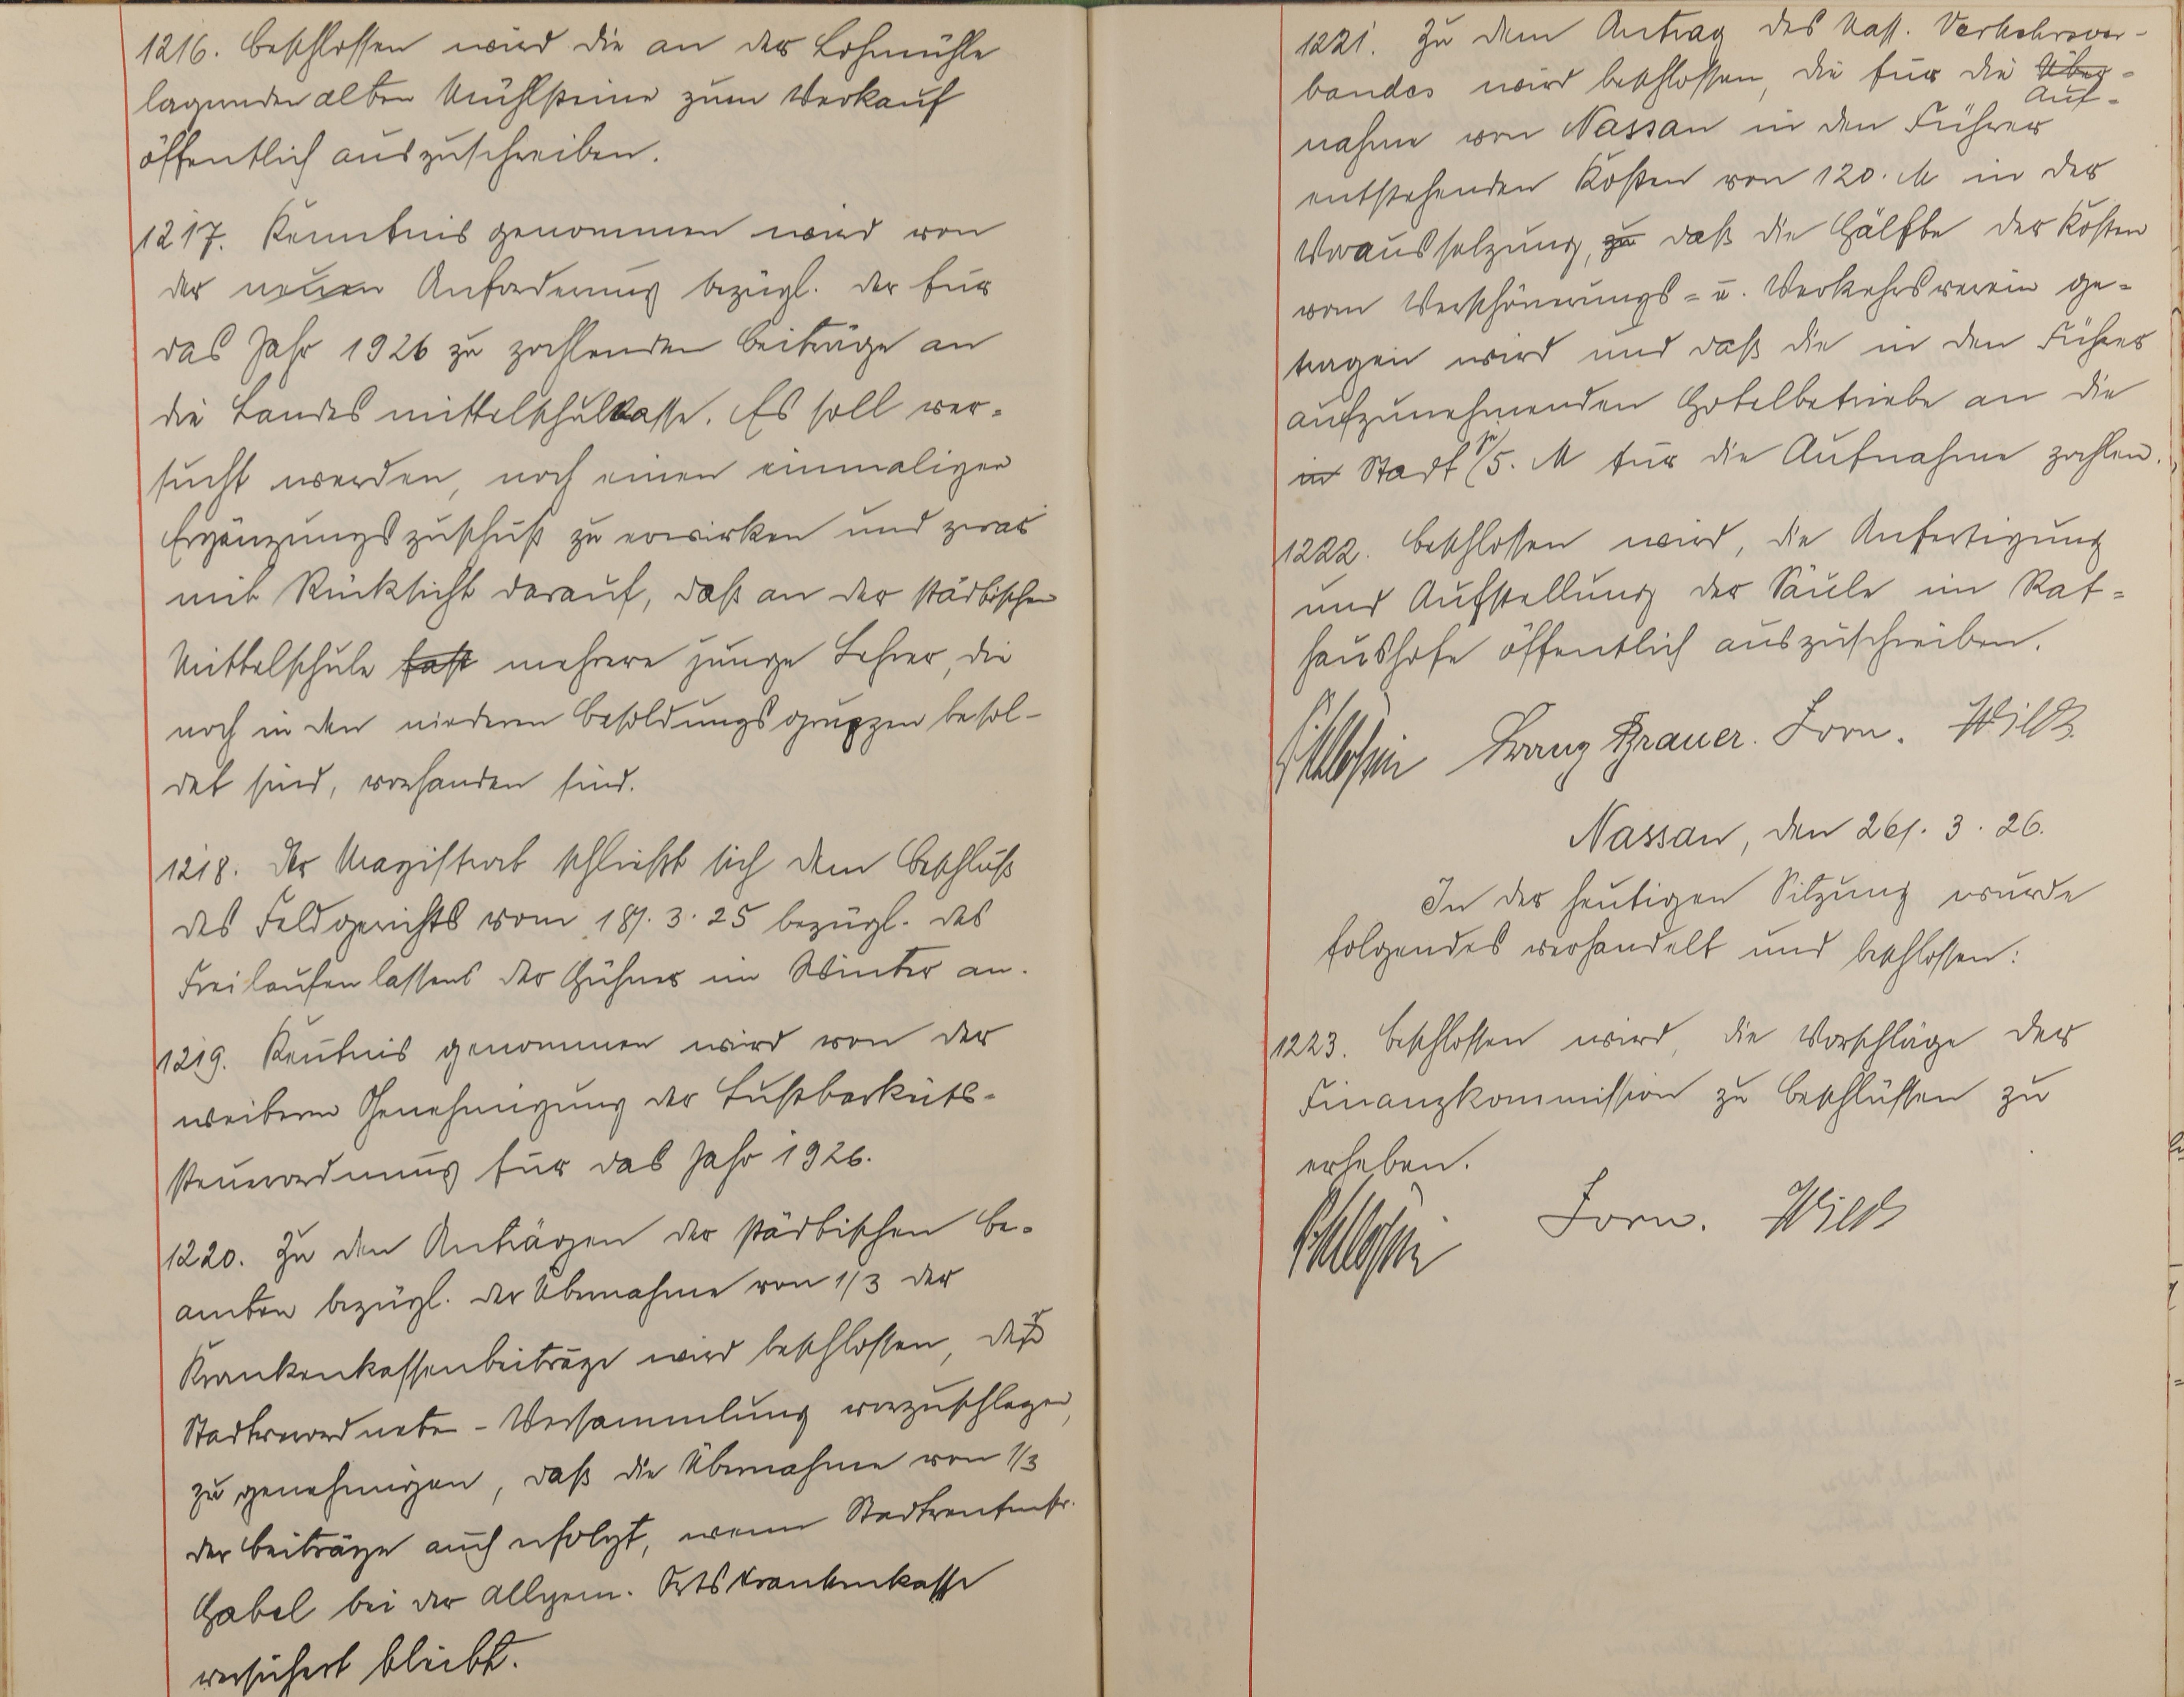 1216. Beschlossen wird die an der Lohmühle
lagernden alten Mühlsteine zum Verkauf
öffentlich auszuschreiben.
1217. Kenntnis genommen wird von
der neuen Anforderung bezügl. der für
das Jahr 1926 zu zahlenden Beiträge an
die Landesmittelschulkasse. Es soll ver-
sucht werden, noch einen einmaligen
Ergänzungszuschuß zu erwirken und zwar
mit Rücksicht darauf, daß an der städtischen
Mittelschule fast mehrere junge Lehrer, die
noch in den niederen Besoldungsgruppen besol-
det sind, vorhanden sind.
1218. Der Magistrat schließt sich dem Beschluß
des Feldgerichts vom 18/. 3. 25 bezügl. des
Freilaufenlassens der Hühner im Winter an.
1219. Kentnis genommen wird von der
weiteren Genehmigung der Lustbarkeits-
steuerordnung für das Jahr 1926.
1220. Zu den Anträgen der städtischen Be-
amten bezügl. der Übernahme von 1/3 der
Krankenkassenbeiträge wird beschlossen, der
Stadtverordneten-Versammlung vorzuschlagen,
zu genehmigen, daß die Übernahme von 1/3
der Beiträge auch erfolgt, wenn Stadtrentmstr.
Gabel bei der Allgem. Ortskrankenkasse
versichert bleibt.
1221. Zu dem Antrag des Nass. Verkehrsver-
bandes wird beschlossen, die für die Über-
Auf-
nahme von Nassau in den Führer
entstehenden Kosten von 120. M in der
Voraussetzung, zu daß die Hälfte der Kosten
vom Verschönerungs- u. Verkehrsverein ge-
tragen wird und daß die in den Führer
aufzunehmenden Hotelbetriebe an die
in Stadt je 5. M für die Aufnahme zahlen.
1222. Beschlossen wird, die Anfertigung
und Aufstellung der Säule im Rat-
haushofe öffentlich auszuschreiben.
Franz Brauer. Zorn. Wild
Nassau, den 26/. 3. 26.
In der heutigen Sitzung wurde
folgendes verhandelt und beschlossen:
1223. Beschlossen wird, die Vorschläge der
Finanzkommission zu Beschlüssen zu
erheben.
Zorn. Wild